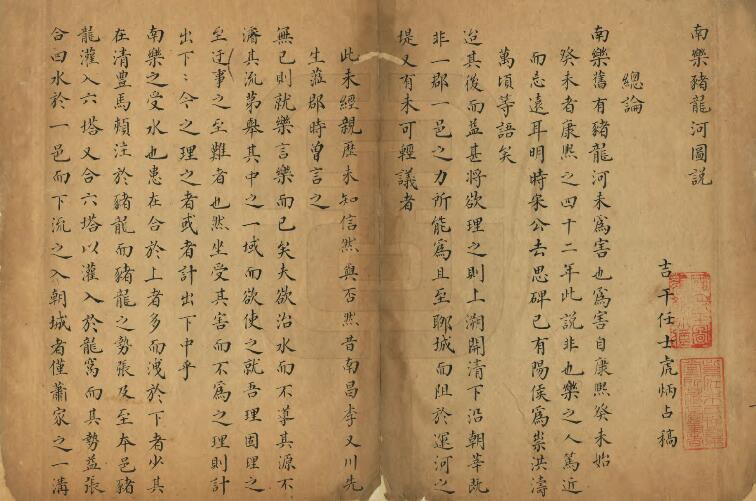 南樂豬龍河圖說
吉平任士虎炳占稿
總論
南樂舊有豬龍河未為害也為害自康熙癸未始
癸未者康熙之四十二年此說非也樂之人篤近
而忘遠耳明時朱公去思碑已有陽侯為祟洪濤
萬頃等語矣
迨其後而益甚將欲理之則上溯開清下沿朝莘既
非一郡一邑之力所能為且至聊城而阻於運河之
堤又有未可輕議者
此未經親歷未知信然與否然昔南昌李又川先
生蒞郡時曾言之
無已則就樂言樂而已矣夫欲治水而不導其源不
濬其流第舉其中之一域而欲使之就吾理固理之
至迂事之至難者也然坐受其害而不為之理則計
出下下令之理之者或者計出下中乎
南樂之受水也患在合於上者多而洩於下者少其
在清豐馬頰注於豬龍而豬龍之勢張及至本邑豬
龍灌入六塔又合六塔以灌入於龍窩而其勢益張
合四水於一邑而下流之入朝城者僅蕭家之一溝